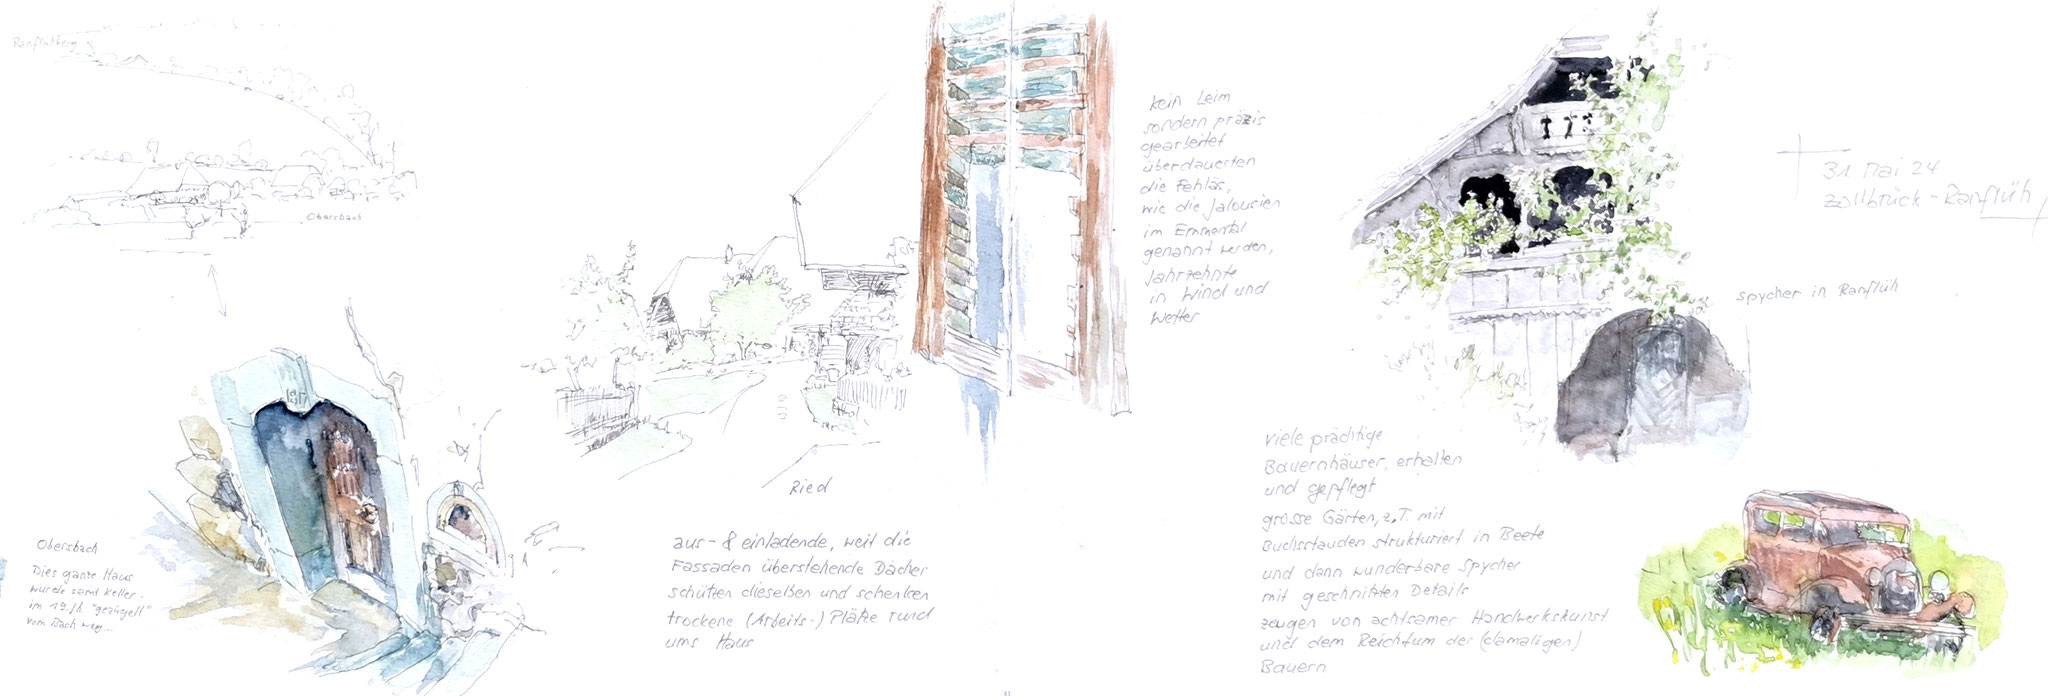 Ranflühberg
Obersbach
Obersbach
Dies ganze Haus
wurde samt Keller
im 19. Jh "gezügelt"
vom Bach weg...
Ried
aus- & einladende, weit die
Fassaden überstehende Dächer
schützen dieselben und schenken
trockene (Arbeits-) Plätze rund
ums Haus
kein Leim
sondern präzis
gearbeitet
überdauerten
die Fehläs,
wie die Jalousien
im Emmental
genannt werden,
Jahrzehnte
in Wind und
Wetter
31 Mai 24
Zollbrück - Ranflüh
Spycher in Ranflüh
viele prächtige
Bauernhäuser, erhalten
und gepflegt
grosse Gärten, z.T. mit
Buchsstauden strukturiert in Beete
und dann wunderbare Spycher
mit geschnitzten Details
zeugen von achtsamer Handwerkskunst
und dem Reichtum der (damaligen)
Bauern